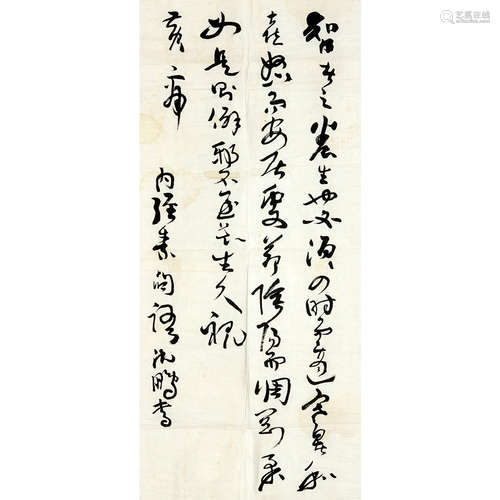 智者之養生也必順四时而適寒暑和
喜怒而安居處節陰陽而調剛柔
如是則僻邪不至長生久視
黄帝
内經素問語沈鵬書
艺狐在线